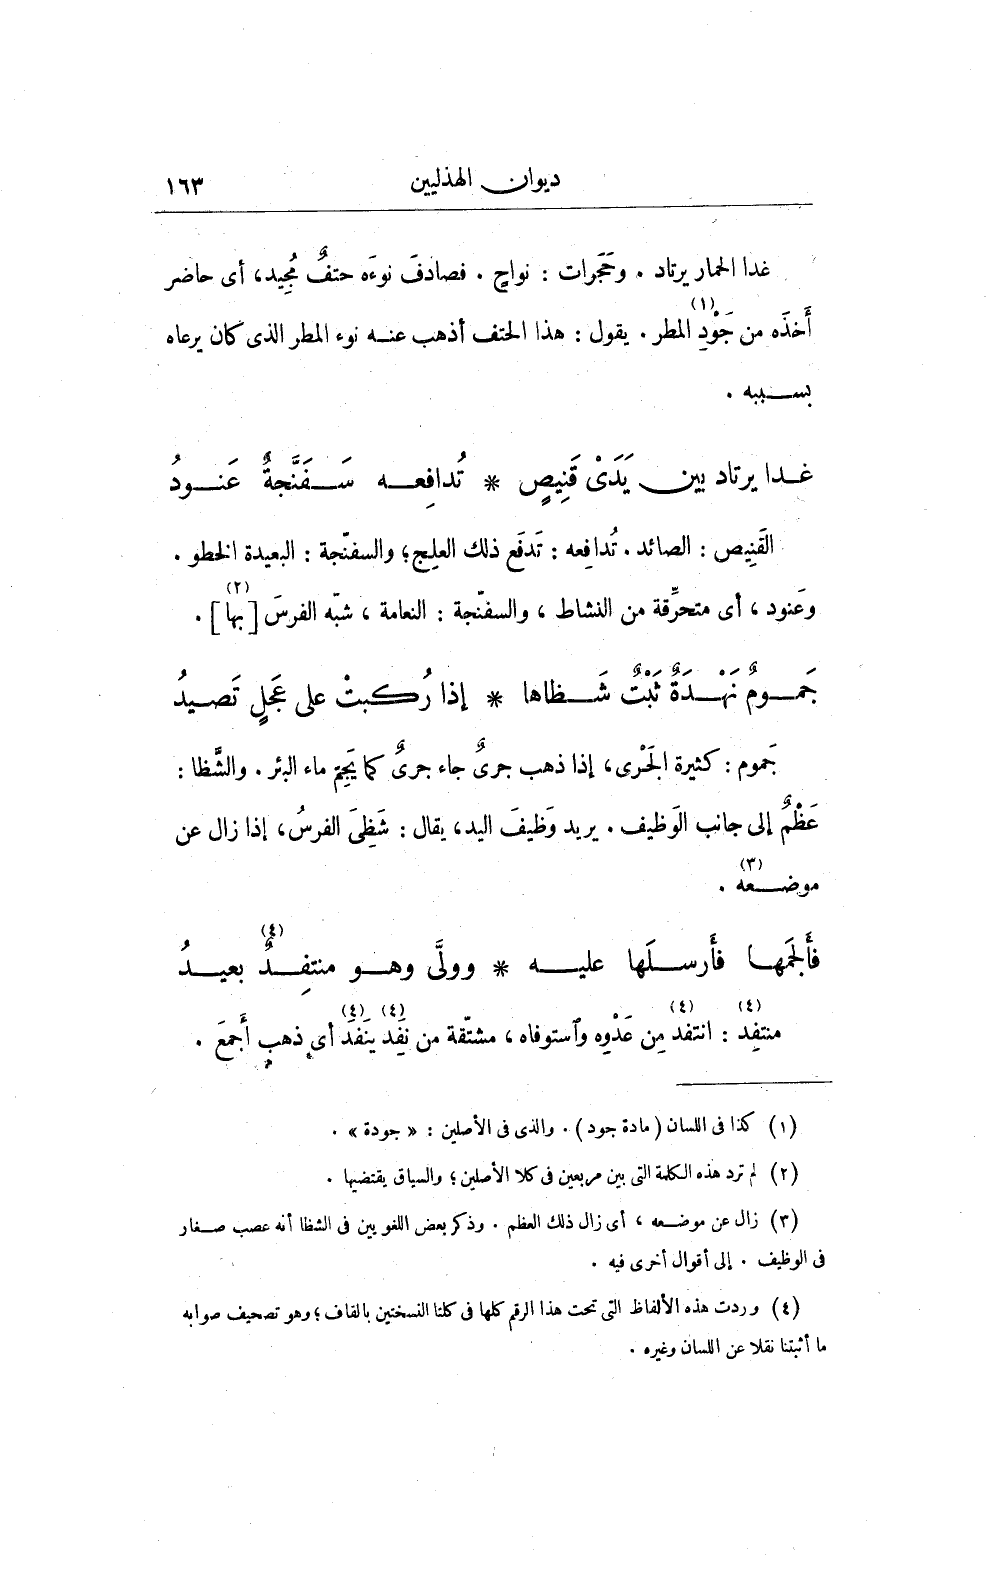 ديوان الهذليين ١٦٣
غدا الحمار يرتاد . وحَجَرات : نواحٍ . فصادفَ نوءَه حتفٌ مُجِيد، أى حاضر
أَخذَه من جَوْدِ (١) المطر . يقول : هذا الحتف أذهب عنه نوء المطر الذى كان يرعاه
بسببه .
غدا يرتاد بين يَدَىْ قَنِيصٍ * تُدافِعه سَفَنَّجةٌ عَنودُ
القَنِيص : الصائد . تُدافِعه : تَدفَع ذلك العلِج؛ والسفنّجة : البعيدة الخطو .
وعَنود ، أى متحرِّفة من النشاط ، والسفنّجة : النعامة ، شبّه الفرسَ [بها] (٢) .
جَمومٌ نَهْدَةٌ ثَبْتٌ شَظاها * إذا رُكبتْ على عَجَلٍ تَصيدُ
جَموم : كثيرة الجَرْى، إذا ذهب جرىٌ جاء جرىٌ كما يَجِمّ ماء البئر . والشَّظا :
عَظْمٌ إلى جانب الوَظيف . يريد وَظيفَ اليد، يقال : شَظِىَ الفرسُ، إذا زال عن
موضعه (٣) .
فأَلجَمَها فأَرسلَها عليه * وولَّى وهو منتفِدٌ (٤) بعيدُ
منتفِد (٤) : انتفد (٤) مِن عَدْوِه وٱستوفاه، مشتّقة من نَفِد (٤) يَنفَد (٤) أى ذهب أَجمعَ .
(١) كذا فى اللسان (مادة جود) . والذى فى الأصلين : « جودة » .
(٢) لم ترد هذه الكلمة التى بين مربعين فى كلا الأصلين؛ والسياق يقتضيها .
(٣) زال عن موضعه ، أى زال ذلك العظم . وذكر بعض اللغويين فى الشظا أنه عصب صغار
فى الوظيف . إلى أقوال أخرى فيه .
(٤) وردت هذه الألفاظ التى تحت هذا الرقم كلها فى كلتا النسختين بالقاف؛ وهو تصحيف صوابه
ما أثبتنا نقلا عن اللسان وغيره .